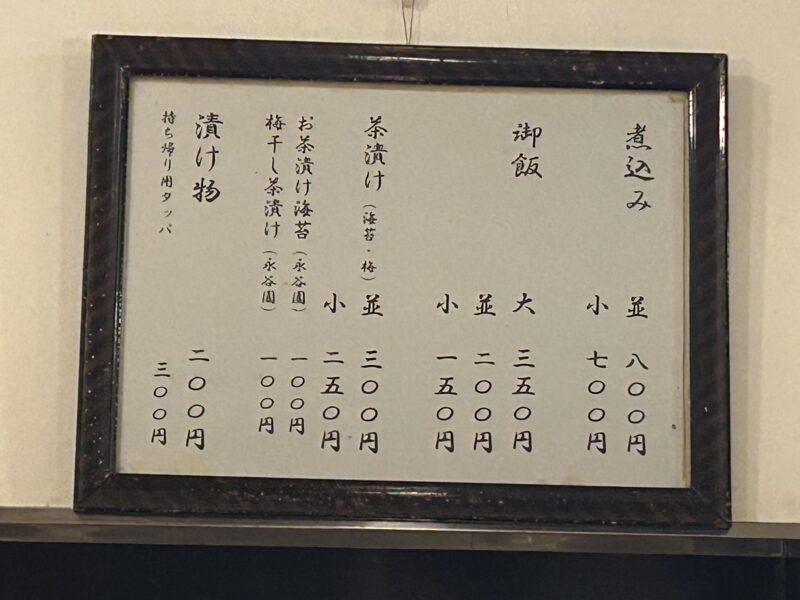 煮込み 並 八〇〇円
小 七〇〇円
御飯 大 三五〇円
並 二〇〇円
小 一五〇円
茶漬け（海苔・梅） 並 三〇〇円
小 二五〇円
お茶漬け海苔（永谷園） 一〇〇円
梅干し茶漬け（永谷園） 一〇〇円
漬け物 二〇〇円
持ち帰り用タッパ 三〇〇円